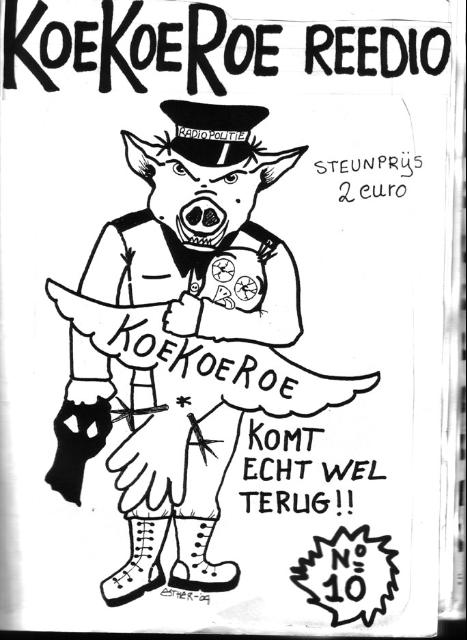 KOEKOEROE REEDIO
RADIOPOLITIE
STEUNPRIJS
2 euro
KOEKOEROE
KOMT
ECHT WEL
TERUG!!
No
10
ESTHER-'09